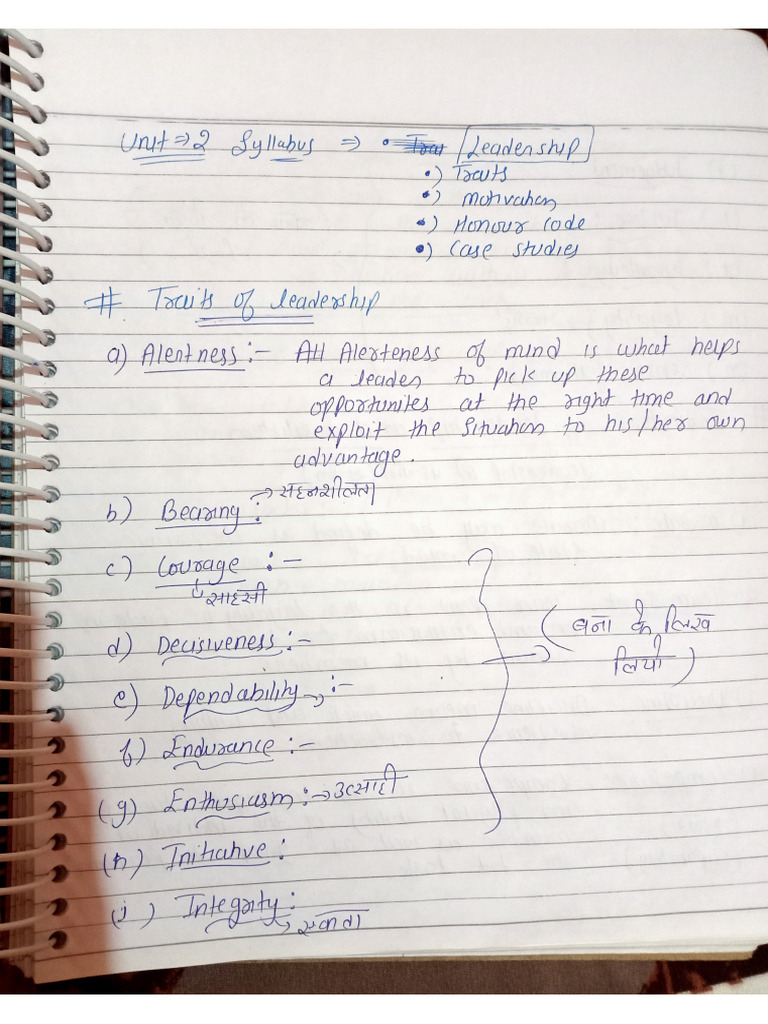 Unit ⇒ 2 Syllabus ⇒ • Leadership
•) Traits
•) Motivation
•) Honour Code
•) Case studies
# Traits of leadership
a) Alertness :- Alerteness of mind is what helps
a leader to pick up these
opportunites at the right time and
exploit the situation to his/her own
advantage.
b) Bearing : → सहनशीलता
c) Courage :-
साहसी
d) Decisiveness :-
e) Dependability :-
(बना के लिख
लियो)
f) Endurance :-
(g) Enthusiasm : → उत्साही
(h) Initiative :
(i) Integrity :
→ एकता